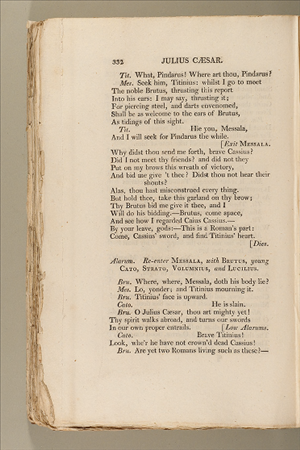 332 JULIUS CÆSAR.
Tit. What, Pindarus! Where art thou, Pindarus?
Mes. Seek him, Titinius: whilst I go to meet
The noble Brutus, thrusting this report
Into his ears: I may say, thrusting it;
For piercing steel, and darts envenomed,
Shall be as welcome to the ears of Brutus,
As tidings of this sight.
Tit. Hie you, Messala,
And I will seek for Pindarus the while.
[Exit MESSALA.
Why didst thou send me forth, brave Cassius?
Did I not meet thy friends? and did not they
Put on my brows this wreath of victory,
And bid me give 't thee? Didst thou not hear their
shouts?
Alas, thou hast misconstrued every thing.
But hold thee, take this garland on thy brow;
Thy Brutus bid me give it thee, and I
Will do his bidding.—Brutus, come apace,
And see how I regarded Caius Cassius.—
By your leave, gods:—This is a Roman's part:
Come, Cassius' sword, and find Titinius' heart.
[Dies.
Alarum. Re-enter MESSALA, with BRUTUS, young
CATO, STRATO, VOLUMNIUS, and LUCILIUS.
Bru. Where, where, Messala, doth his body lie?
Mes. Lo, yonder; and Titinius mourning it.
Bru. Titinius' face is upward.
Cato. He is slain.
Bru. O Julius Cæsar, thou art mighty yet!
Thy spirit walks abroad, and turns our swords
In our own proper entrails. [Low Alarums.
Cato. Brave Titinius!
Look, whe'r he have not crown'd dead Cassius!
Bru. Are yet two Romans living such as these?—